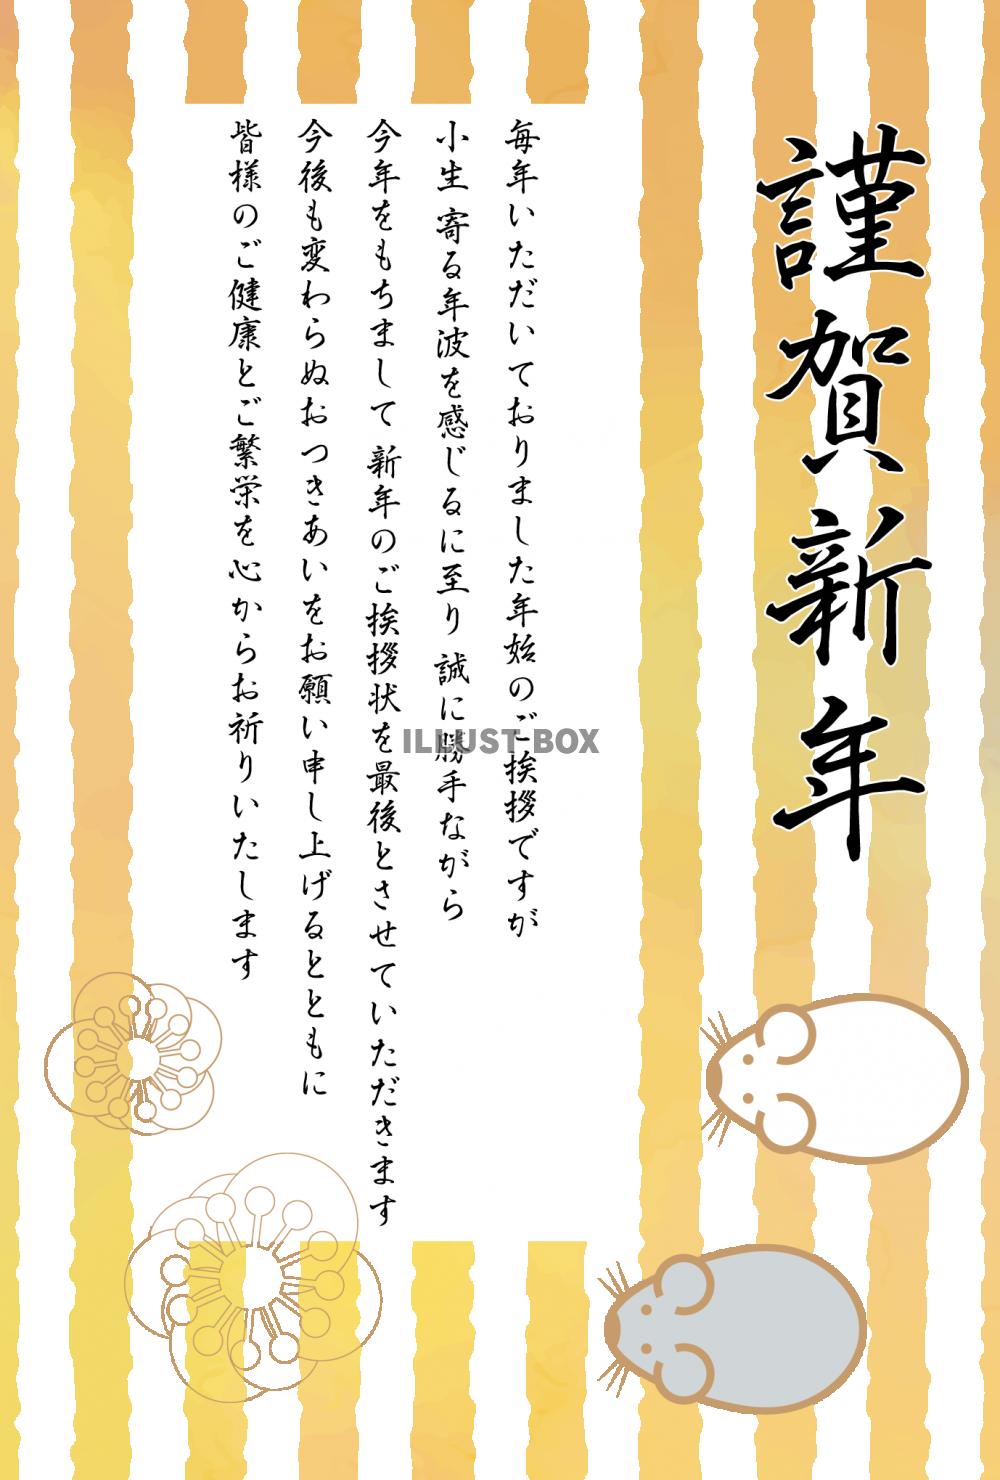 謹賀新年
毎年いただいておりました年始のご挨拶ですが
小生 寄る年波を感じるに至り 誠に勝手ながら
今年をもちまして 新年のご挨拶状を最後とさせていただきます
今後も変わらぬおつきあいをお願い申し上げるとともに
皆様のご健康とご繁栄を心からお祈りいたします
ILLUST BOX